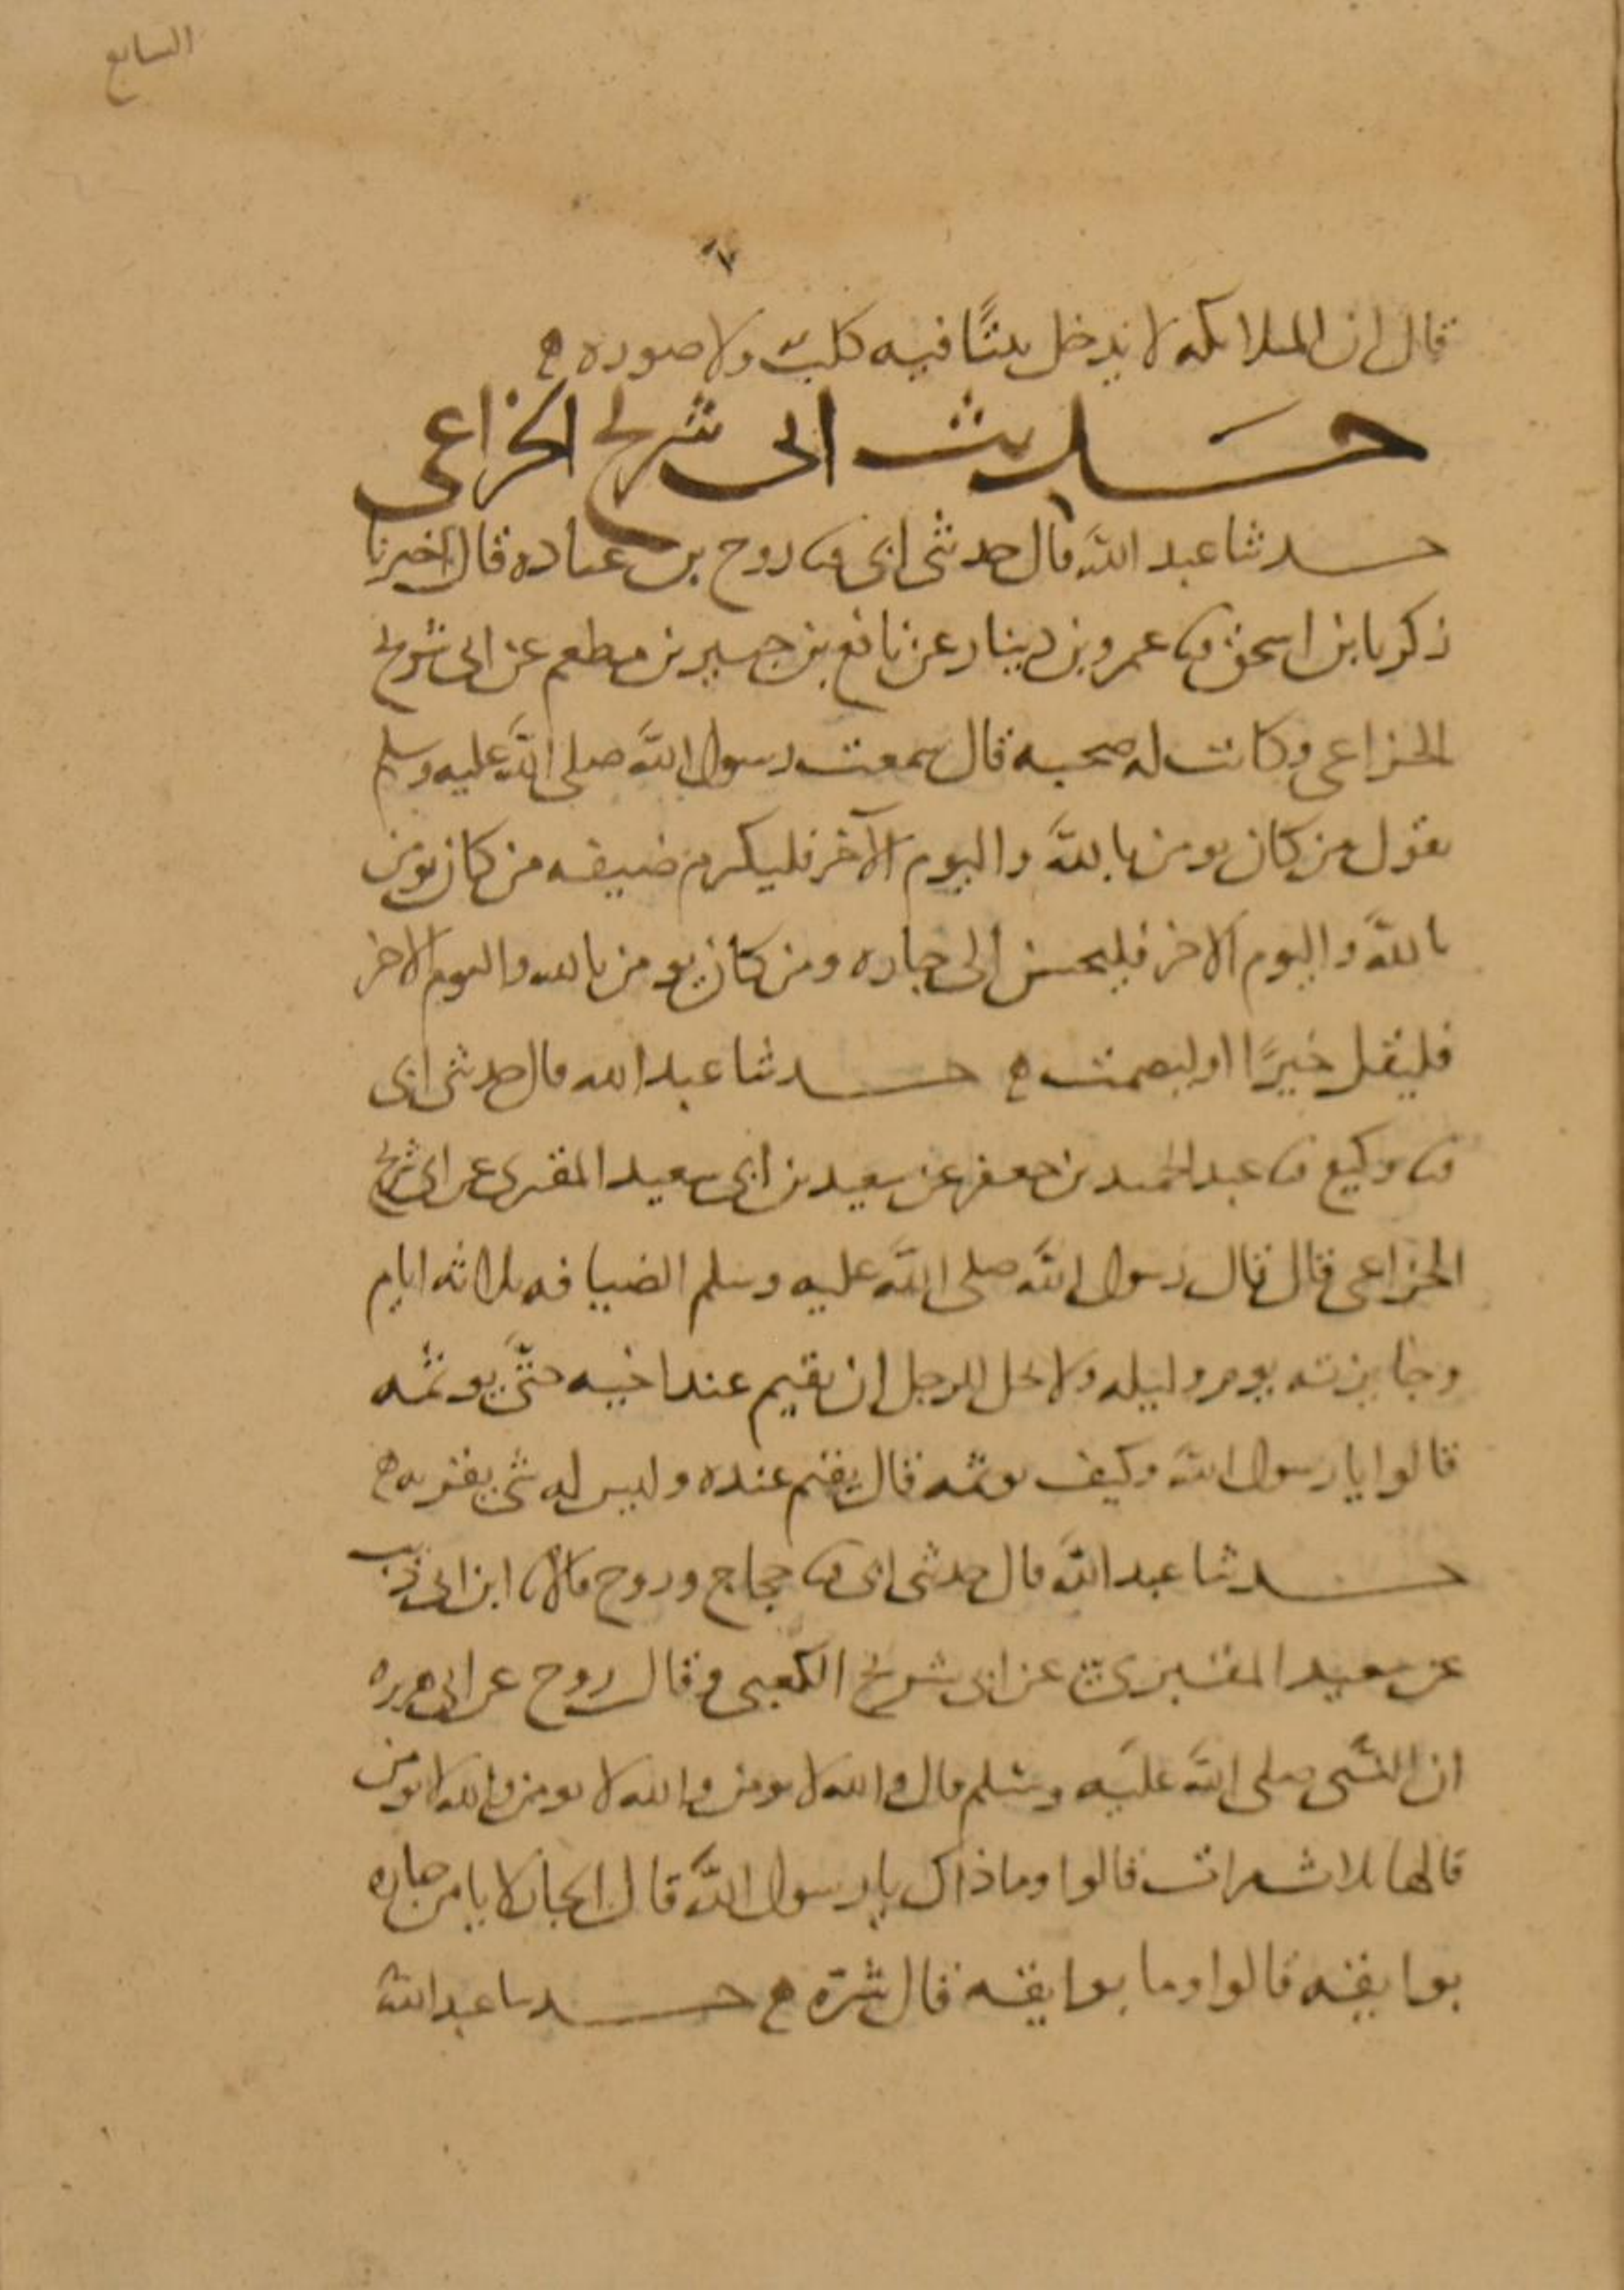 السابع
٧
قال ان الملائكة لا تدخل بيتًا فيه كلبٌ ولا صورة ه
حَديث ابي شريح الخزاعي
حدثنا عبد الله قال حدثني ابي ثنا روح بن عبادة قال اخبرنا
زكريا بن اسحق ثنا عمرو بن دينار عن نافع بن جبير بن مطعم عن ابي شريح
الخزاعي وكانت له صحبة قال سمعت رسول الله صلى الله عليه وسلم
يقول من كان يومن بالله واليوم الآخر فليكرم ضيفه من كان يومن
بالله واليوم الاخر فليحسن الى جاره ومن كان يومن بالله واليوم الاخر
فليقل خيرًا او ليصمت ه حدثنا عبد الله قال حدثني ابي
ثنا وكيع ثنا عبد الحميد بن جعفر عن سعيد بن ابي سعيد المقبري عن ابي شريح
الخزاعي قال قال رسول الله صلى الله عليه وسلم الضيافة ثلاثة ايام
وجايزته يوم وليلة ولا يحل للرجل ان يقيم عند اخيه حتَّى يوثمه
قالوا يا رسول الله وكيف يوثمه قال يقيم عنده وليس له شي يقريه ه
حدثنا عبد الله قال حدثني ابي ثنا حجاج وروح قالا ثنا ابن ابي ذيب
عن سعيد المقبري عن ابي شريح الكعبي وقال روح عن ابي هريرة
ان النبي صلى الله عليه وسلم قال والله لا يومن والله لا يومن والله لا يومن
قالها ثلاث مرات قالوا وما ذاك يا رسول الله قال الجار لا يامن جاره
بوايقه قالوا وما بوايقه قال شرّه ه حدثنا عبد الله